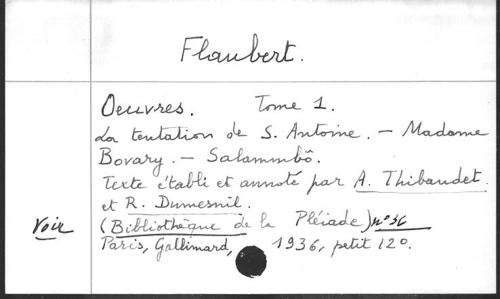 Flaubert.
Oeuvres. Tome 1.
La tentation de S. Antoine. – Madame
Bovary. – Salammbô.
Texte établi et annoté par A. Thibaudet
et R. Dumesnil.
Voir (Bibliothèque de la Pléiade) n° 36
Paris, Gallimard, 1936, petit 12°.